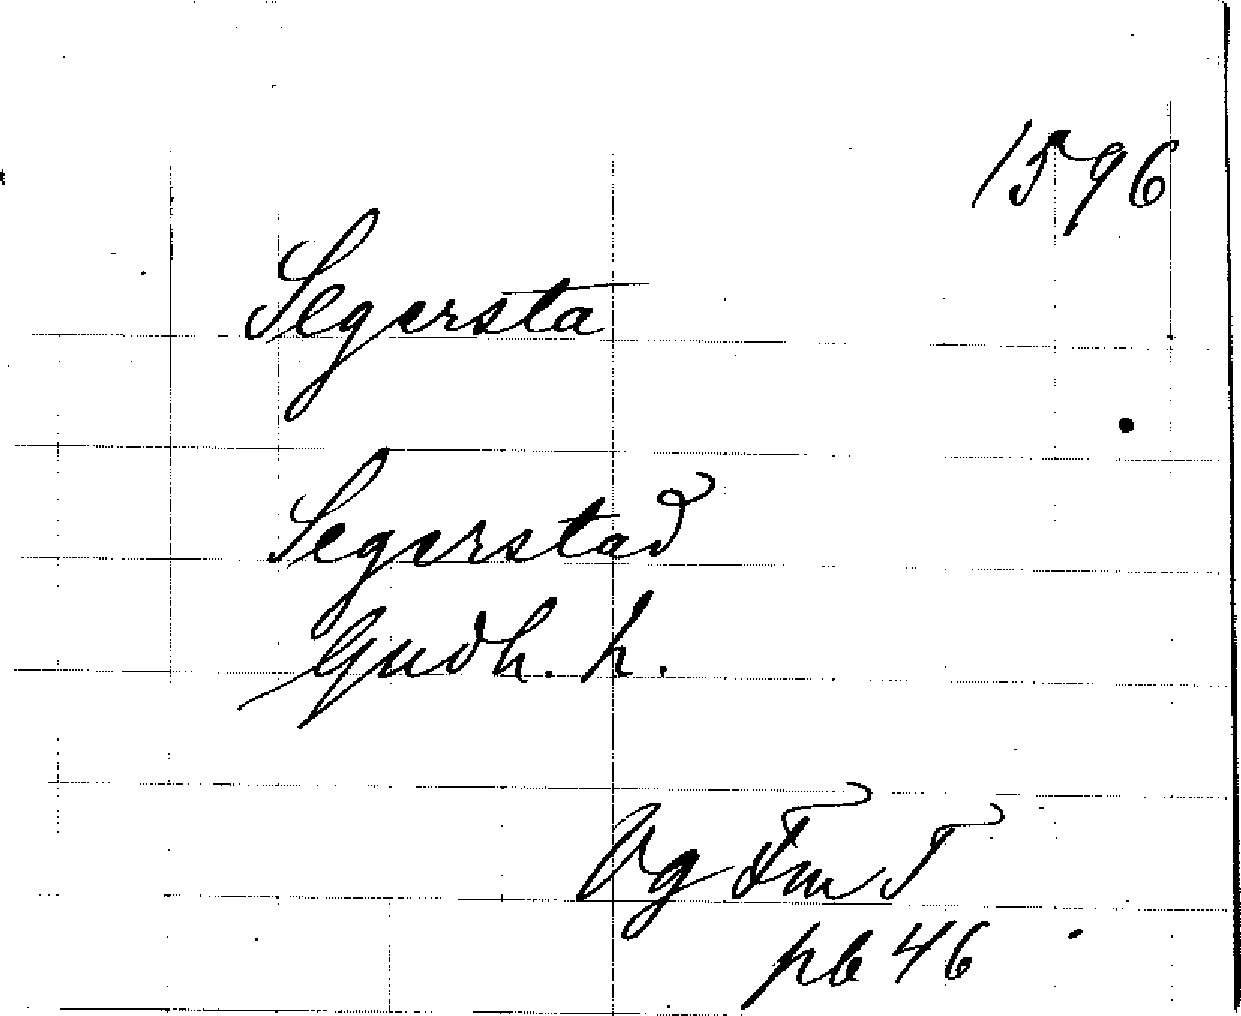 1596
Segersta
Segerstad
Gudh. h.
Vg FmT
pb 46